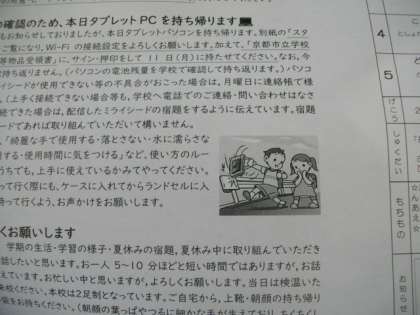 の確認のため、本日タブレットPCを持ち帰ります
もお知らせしておりましたが、本日タブレットパソコンを持ち帰ります。別紙の『スタ
ご覧になり、Wi-Fiの接続設定をよろしくお願いします。加えて、「京都市立学校
等物品受領書」に、サイン・押印をして11日(月)に持たせてください。なお、今
ち返りません。(パソコンの電池残量を学校で確認して持ち返ります。)パソコ
イシードが使用できない等の不具合がおこった場合は、月曜日に連絡帳で様
。(上手く接続できない場合等も、学校へ電話でのご連絡・問い合わせはなさ
続できた場合は、配信したミライシードの宿題をするように伝えています。宿題
ードであれば取り組んでいただいて構いません。
、「綺麗な手で使用する・落とさない・水に濡らさな
用する・使用時間に気をつける」など、使い方のルー
うちでも、上手に使えているかみてやってください。ま
って行く際にも、ケースに入れてからランドセルに入
持って行くよう、お声かけをお願いします。
くお願いします
学期の生活・学習の様子・夏休みの宿題、夏休み中に取り組んでいただき
話したいと思います。お一人5~10分ほどと短い時間ではありますが、お話
えています。お忙しい中と思いますが、よろしくお願いします。当日は検温いた
来校ください。本校は2足制となっています。ご自宅から、上靴・朝顔の持ち帰り
袋をお持ちください。(朝顔の葉っぱやつるに細かな手が生えており、
4
5
げこう
しゅくだい
もちもの
お知らせ